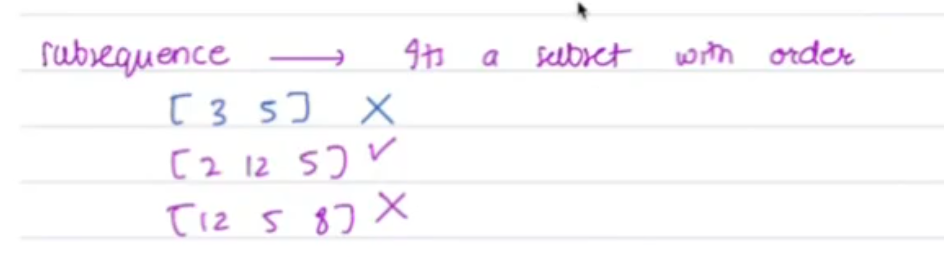 subsequence → Its a subset with order
[ 3 5 ] ✗
[ 2 12 5 ] ✓
[ 12 5 8 ] ✗